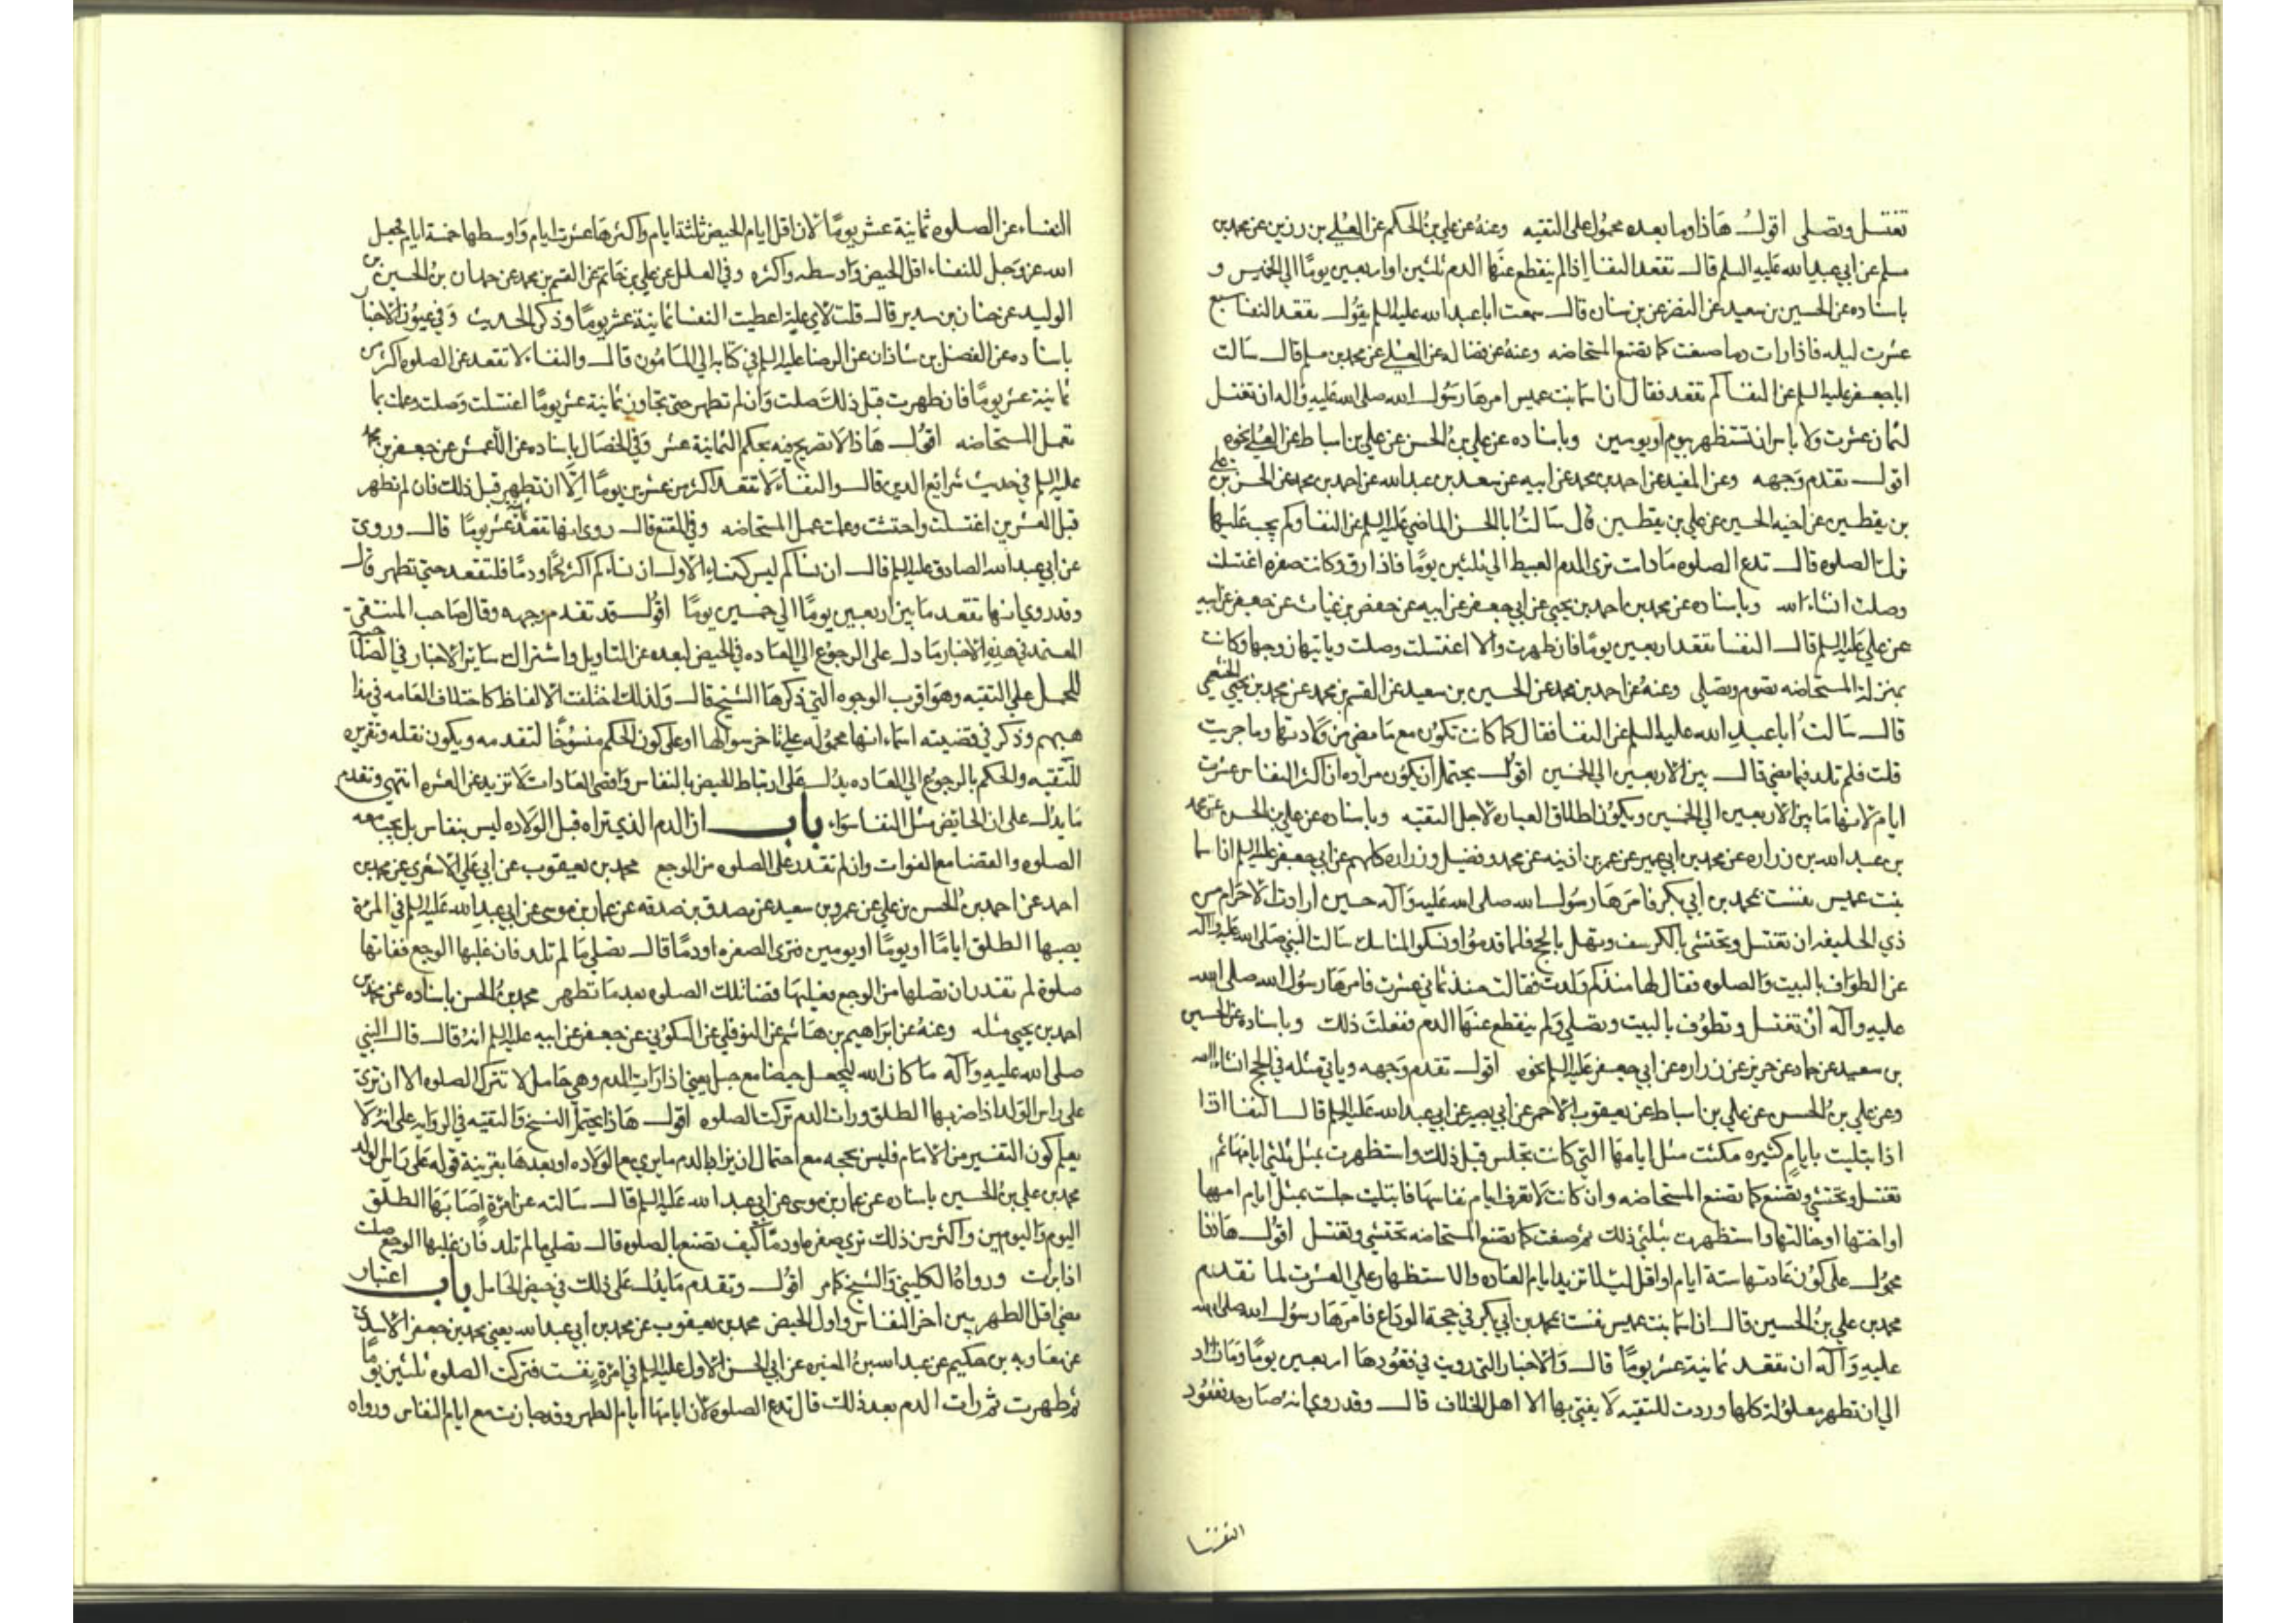 تغتسل وتصلى اقول هاذا وما بعده محمول على التقيه وعنه عن علي بن الحكم عن العلي بن رزين عن محمد بن
مسلم عن ابي عبد الله عليه السلم قال تقعد النفسا اذا لم ينقطع عنها الدم ثلثين او اربعين يومًا الى الخمسين و
باسناده عن الحسين بن سعيد عن النضر عن بن سنان قال سمعت ابا عبد الله عليه السلم يقول تقعد النفسا سبع
عشرت ليله فاذا رات دما صنعت كما تصنع المستحاضه وعنه عن فضاله عن العلى عن محمد بن مسلم قال سالت
ابا جعفر عليه السلم عن النفسا كم تقعد فقال ان اسما بنت عميس امرها رسول الله صلى الله عليه واله ان تغتسل
لثمان عشرت ولا باس ان تستظهر بيوم او يومين وباسناده عن علي بن الحسن عن علي بن اسباط عن العلى نحوه
اقول تقدم وجهه وعن المفيد عن احمد بن محمد عن ابيه عن سعد بن عبد الله عن احمد بن محمد عن الحسن بن علي
بن يقطين عن اخيه الحسين عن علي بن يقطين قال سالت ابا الحسن الماضي عليه السلم عن النفسا وكم يجب عليها
ترك الصلوه قال تدع الصلوه مادات ترى الدم العبيط الى ثلثين يومًا فاذا رق وكانت صفره اغتسلت
وصلت انشاء الله وباسناده عن محمد بن احمد بن يحيى عن ابي جعفر عن ابيه عن حفص بن غياث عن جعفر عن ابيه
عن علي عليه السلم قال النفسا تقعد اربعين يومًا فان طهرت والا اغتسلت وصلت وياتيها زوجها وكانت
بمنزلة المستحاضه تصوم وتصلى وعنه عن احمد بن محمد عن الحسين بن سعيد عن القسم بن محمد عن محمد بن يحيى الخثعمي
قال سالت ابا عبد الله عليه السلم عن النفسا فقال كما كانت تكون مع ما مضى من ولادتها وما جربت
قلت فلم تلد فيما مضى قال بين الاربعين الى الخمسين اقول يحتمل ان يكون مراده ان اكثر النفاس عشرت
ايام لانها ما بين الاربعين الى الخمسين ويكون اطلاق العباره لاجل التقيه وباسناده عن علي بن الحسن عن محمد
بن عبد الله بن زراره عن محمد بن ابي عمير عن عمر بن اذينه عن محمد وفضيل وزراره كلهم عن ابي جعفر عليه السلم ان اسما
بنت عميس نفست بمحمد بن ابي بكر فامرها رسول الله صلى الله عليه واله حين ارادت الاحرام من
ذي الحليفه ان تغتسل وتحتشى بالكرسف وتهل بالحج فلما قدموا ونسكوا المناسك سالت النبي صلى الله عليه واله
عن الطواف بالبيت والصلوه فقال لها منذ كم ولدت فقالت منذ ثماني عشرت فامرها رسول الله صلى الله
عليه وآله ان تغتسل وتطوف بالبيت وتصلي ولم ينقطع عنها الدم ففعلت ذلك وباسناده عن الحسين
بن سعيد عن حماد عن حريز عن زراره عن ابي جعفر عليه السلم نحوه اقول تقدم وجهه وياتي مثله في الحج انشاء الله
وعن علي بن الحسن عن علي بن اسباط عن يعقوب الاحمر عن ابي بصير عن ابي عبد الله عليه السلم قال النفسا اذا
اذا بتليت بايام كثيره مكثت مثل ايامها التي كانت تجلس قبل ذلك واستظهرت بمثل ثلثى ايامها ثم
تغتسل وتحتشى وتصنع كما تصنع المستحاضه وان كانت لا تعرف ايام نفاسها فابتليت جلست بمثل ايام امها
او اختها او خالتها واستظهرت بثلثي ذلك ثم صنعت كما تصنع المستحاضه تحتشى وتغتسل اقول هاذا
محمول على كون عادتها ستة ايام او اقل لئلا تزيد ايام العاده والاستظهار على العشرت لما تقدم
محمد بن علي بن الحسين قال ان اسما بنت عميس نفست بمحمد بن ابي بكر في حجة الوداع فامرها رسول الله صلى الله
عليه وآله ان تقعد ثمانية عشر يومًا قال والاخبار التي رويت في قعودها اربعين يومًا وما زاد
الى ان تطهر معلولة كلها وردت للتقيه لا يفتي بها الا اهل الخلاف قال وقد روي انه صار حد قعود
النفسا
النفساء عن الصلوه ثمانية عشر يومًا لان اقل ايام الحيض ثلثة ايام واكثرها عشرت ايام واوسطها خمسة ايام فجعل
الله عز وجل للنفساء اقل الحيض واوسطه واكثره وفي العلل عن علي بن حاتم عن القسم بن محمد عن حمدان بن الحسين عن
الوليد عن حنان بن سدير قال قلت لاي علة اعطيت النفسا ثمانية عشر يومًا وذكر الحديث وفي عيون الاخبار
باسناده عن الفضل بن شاذان عن الرضا عليه السلم في كتابه الى المامون قال والنفساء لا تقعد عن الصلوه اكثر من
ثمانية عشر يومًا فان طهرت قبل ذلك صلت وان لم تطهر حتى تجاوز ثمانية عشر يومًا اغتسلت وصلت وعملت بما
تعمل المستحاضه اقول هاذا لا تصريح فيه بحكم الثمانية عشر وفي الخصال باسناده عن الاعمش عن جعفر بن محمد
عليه السلم في حديث شرائع الدين قال والنفساء لا تقعد اكثر من عشرين يومًا الا ان تطهر قبل ذلك فان لم تطهر
قبل العشرين اغتسلت واحتشت وعملت عمل المستحاضه وفي المقنع قال روى انها تقعد ثمانية عشر يومًا قال وروى
عن ابي عبد الله الصادق عليه السلم قال ان نساكم ليس كنساء الاول ان نساءكم اكثر لحمًا ودمًا فلتقعد حتى تطهر قال
وقد روي انها تقعد ما بين اربعين يومًا الى خمسين يومًا اقول قد تقدم وجهه وقال صاحب المنتقى
المعتمد في هذه الاخبار ما دل على الرجوع الى العاده في الحيض لبعده عن التاويل واشتراك سائر الاخبار في الصلاحية
للحمل على التقيه وهو اقرب الوجوه التي ذكرها الشيخ قال ولذلك اختلفت الالفاظ كاختلاف العامه في مذا
هبهم وذكر في قضيته اسماء انها محموله على تاخر سوالها او على كون الحكم منسوخًا لتقدمه ويكون نقله وتقريره
للتقيه والحكم بالرجوع الى العاده يدل على ارتباط الحيض بالنفاس واقصى العادات لا تزيد عن العشره انتهى وتقدم
ما يدل على ان الحائض مثل النفسا سواء باب ان الدم الذي تراه قبل الولاده ليس بنفاس بل يجب معه
الصلوه والقضا مع الفوات وان لم تقدر على الصلوه من الوجع محمد بن يعقوب عن ابي علي الاشعري عن محمد بن
احمد عن احمد بن الحسن بن علي عن عمرو بن سعيد عن مصدق بن صدقه عن عمار بن موسى عن ابي عبد الله عليه السلم في المرءة
يصيبها الطلق ايامًا او يومًا او يومين فترى الصفره او دمًا قال تصلي ما لم تلد فان غلبها الوجع ففاتها
صلوة لم تقدر ان تصلها من الوجع فعليها قضا تلك الصلوه بعد ما تطهر محمد بن الحسن باسناده عن محمد بن
احمد بن يحيى مثله وعنه عن ابراهيم بن هاشم عن النوفلي عن السكوني عن جعفر عن ابيه عليه السلم انه قال قال النبي
صلى الله عليه وآله ما كان الله ليجعل حيضا مع حبل يعني اذا رات الدم وهي حامل لا تترك الصلوه الا ان ترى
على راس الولد اذا ضربها الطلق ورات الدم تركت الصلوه اقول هاذا يحتمل النسخ والتقيه في الروايه على انه لا
يعلم كون التفسير من الامام فليس بحجه مع احتمال ان يراد بالدم ما يرى مع الولاده او بعدها بقرينة قوله على راس الولد
محمد بن علي بن الحسين باسناده عن عمار بن موسى عن ابي عبد الله عليه السلم قال سالته عن امرءة اصابها الطلق
اليوم واليومين واكثر من ذلك ترى صفره او دمًا كيف تصنع بالصلوه قال تصلي ما لم تلد فان غلبها الوجع صلت
اذا برات ورواه الكليني والشيخ كما مر اقول وتقدم ما يدل على ذلك في حيض الحامل باب اعتبار
مضي اقل الطهر بين اخر النفاس واول الحيض محمد بن يعقوب عن محمد بن ابي عبد الله يعني محمد بن جعفر الاسدى
عن معاويه بن حكيم عن عبد الله بن المغيره عن ابي الحسن الاول عليه السلم في امرءة نفست فتركت الصلوه ثلثين يومًا
ثم طهرت ثم رات الدم بعد ذلك قال تدع الصلوه لان ايامها ايام الطهر وقد جازت مع ايام النفاس ورواه